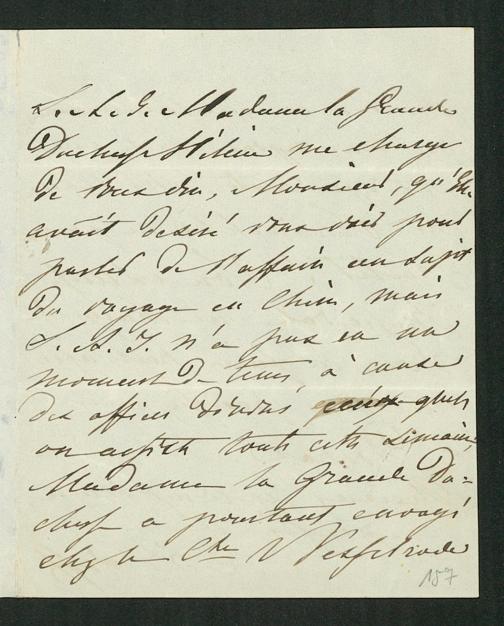 S. A. I. Madame la Grande
Duchesse Hélène me charge
de vous dire, Monsieur, qu'Elle
avait desiré vous voir pour
parler de l'affaire au sujet
du voyage en Chine, mais
S. A. I. n'a pas eu un
moment de tems, à cause
des offices divins auxquels
on assiste toute cette semaine,
Madame la Grande Du=
chesse a pourtant envoyé
chez le Cte Nesselrode
157